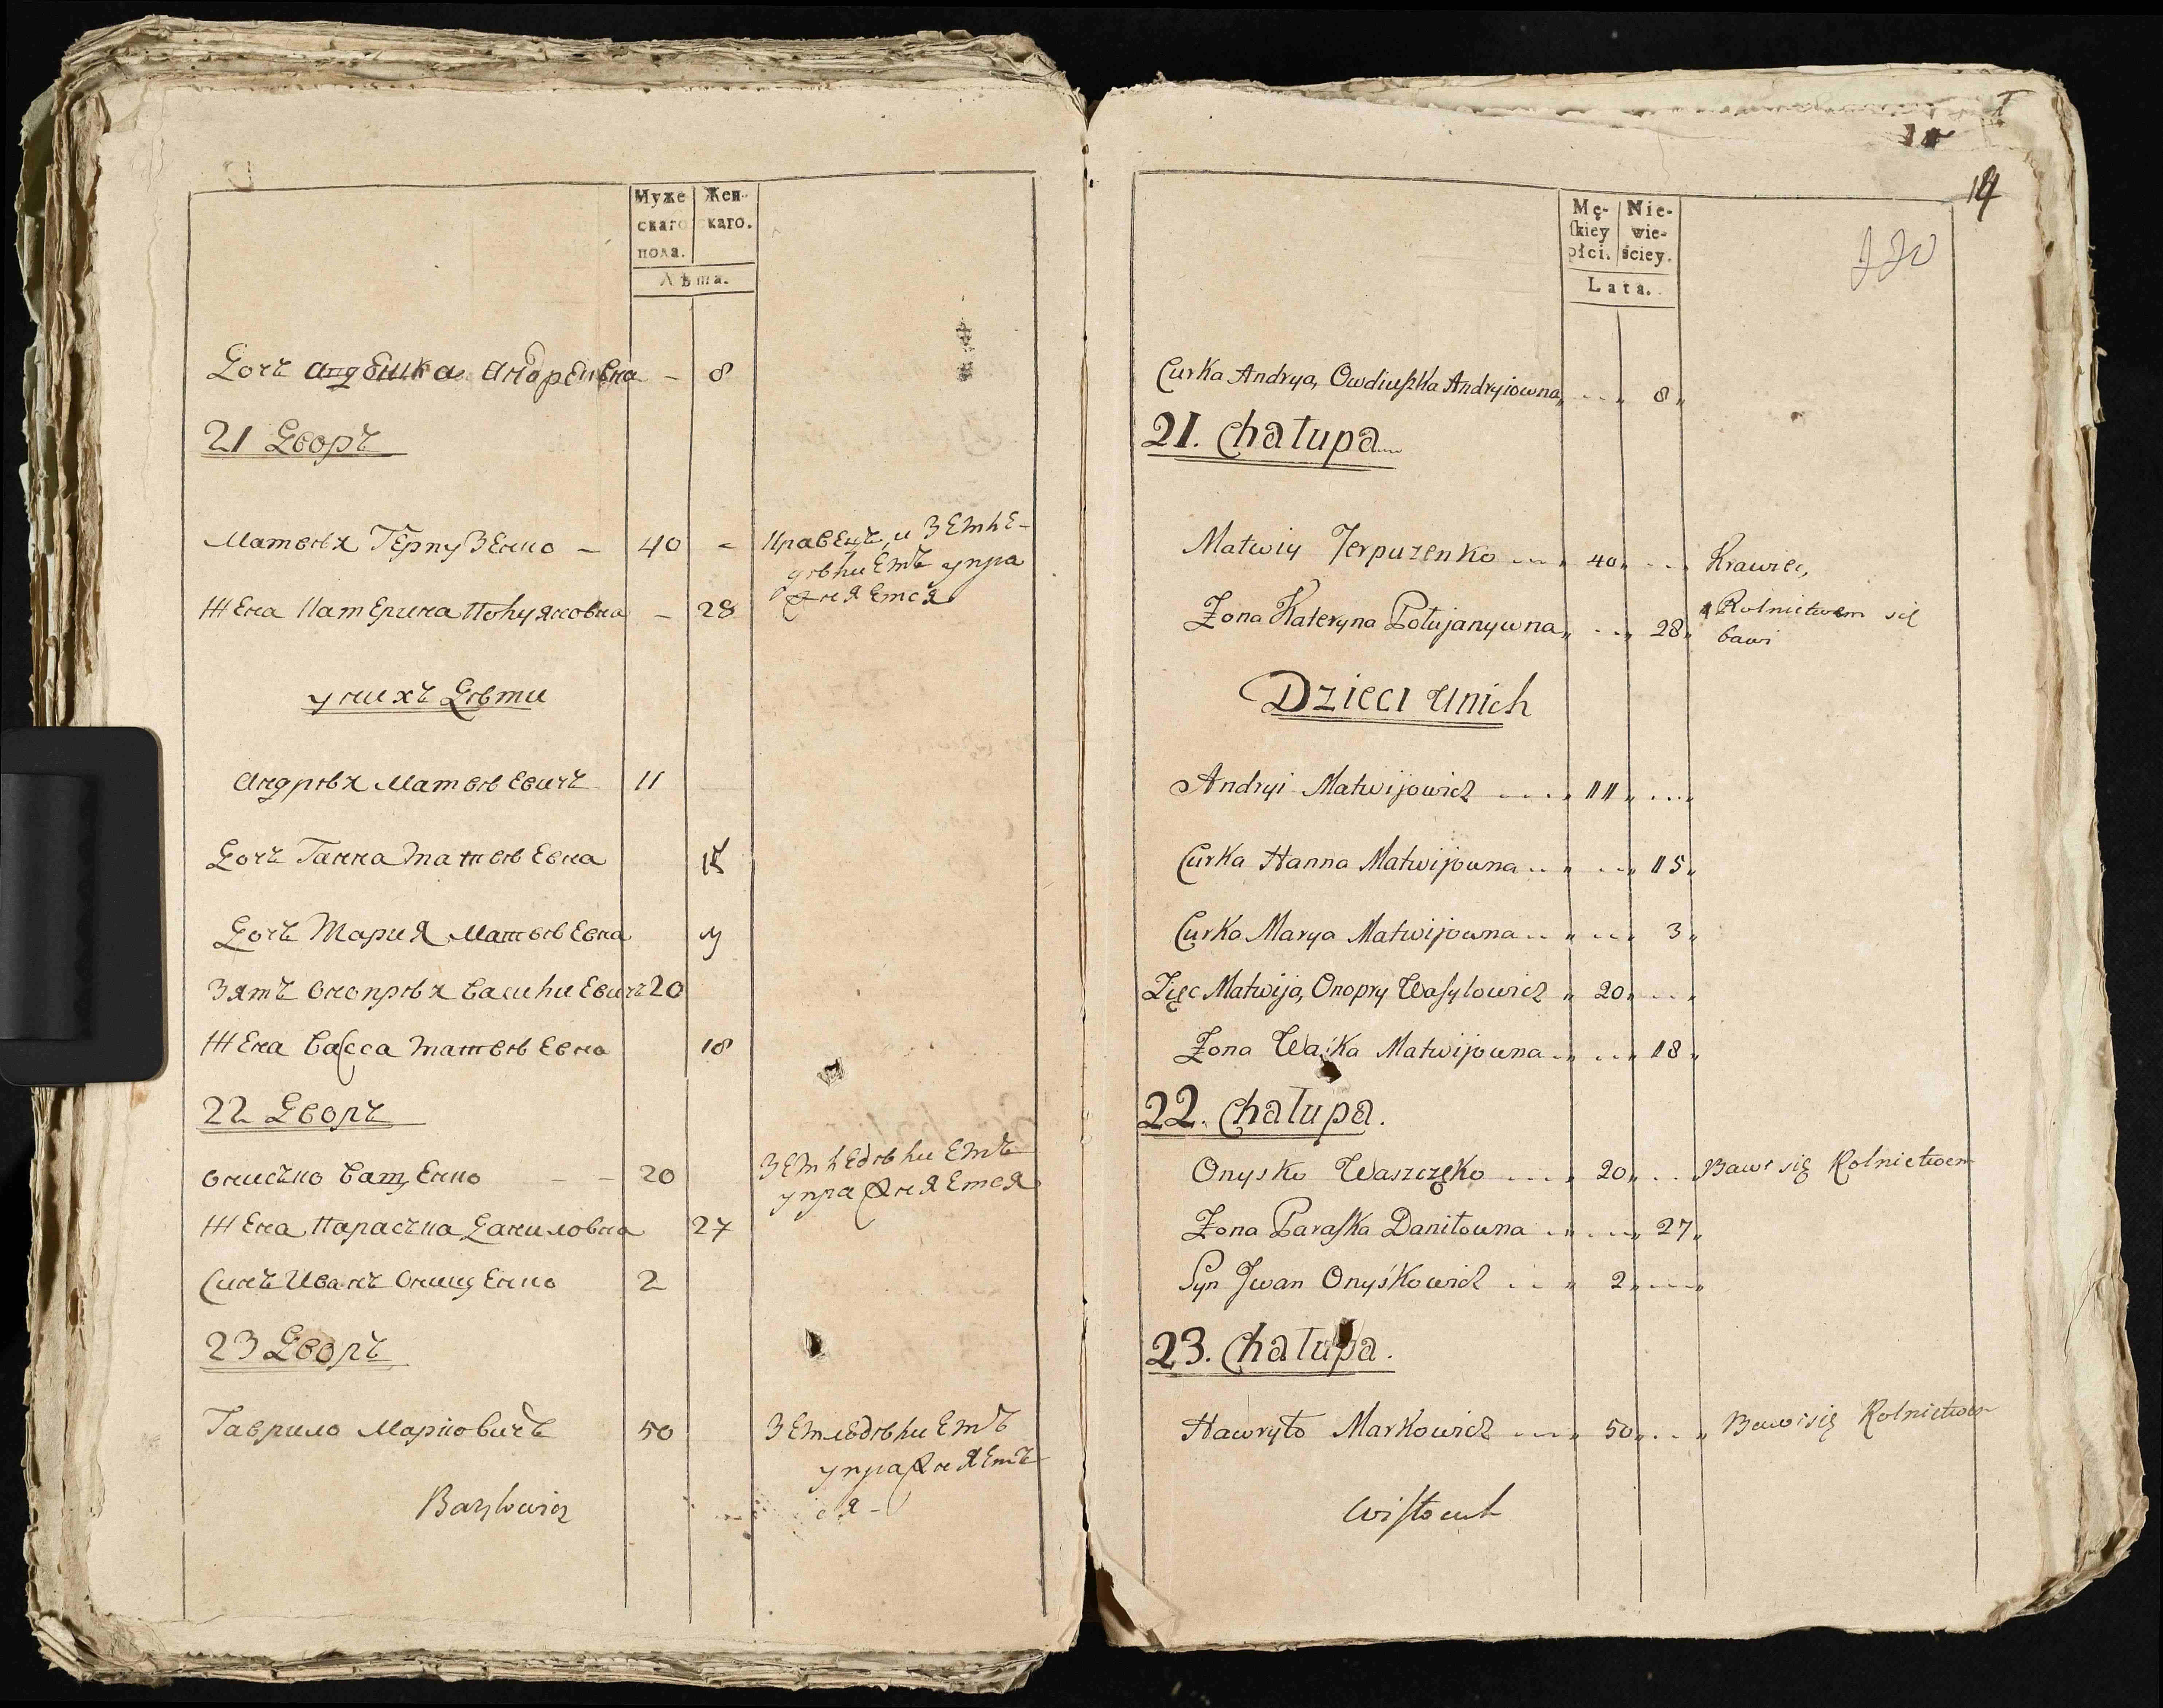 Муже
скаго
пола.
Жен-
скаго.
Лѣта.
Дочъ Андреивна – 8
21 Дворъ
Матвѣя Терпузенко – 40 –
Кравецъ, и Земле-
дѣлиемъ упра
жняется
Жена Катерина Полуяновна – 28
у нихъ Дѣти
Андрѣя Матвѣевичъ 11
Дочъ Ганна Матвѣевна 15
Дочъ Мария Матвѣевна
Зятъ Онопрѣя Василиевичъ 20
Жена Васса Матвѣевна 18
22 Дворъ
Онисько Ващенко – – 20
Земледѣлиемъ
упражняется
Жена Параська Даниловна 27
Синъ Иванъ Онищенко 2
23 Дворъ
Гаврило Марковичъ 50
Земледѣлиемъ
упражняетъ
ся –
14
Mę-
skiey
płci.
Nie-
wie-
ściey.
Lata.
Curka Andrya, Owdiuszka Andryiowna 8
21. Chałupa
Matwiy Terpuzenko 40
Krawiec,
Zona Kateryna Połujanywna 28
Rolnictwem się
bawi
Dzieci unich
Andryi Matwijowicz 11
Curka Hanna Matwijowna 15
Curka Marya Matwijowna 3
Zięc Matwija, Onopry Wasylowicz 20
Zona Waśka Matwijowna 18
22. Chałupa.
Onysko Waszczęko 20 Bawi się Rolnictwem
Zona Paraska Daniłowna 27
Syn Jwan Onyśkowicz 2
23. Chałupa.
Hawryło Markowicz 50 Bawi się Rolnictwem